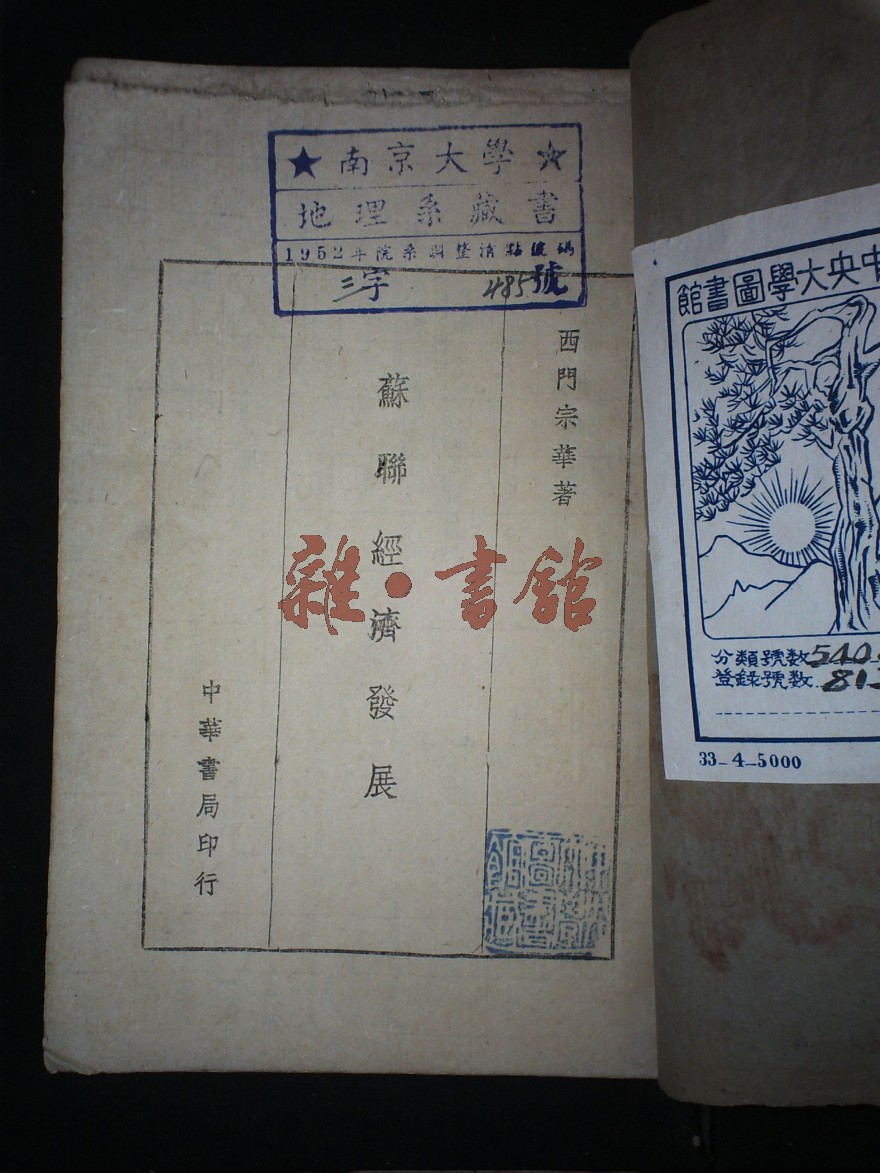 ★南京大學★
地理系藏書
1952年院系調整清點號碼
三字 485號
西門宗華著
蘇聯經濟發展
中華書局印行
雜·書館
中央大學圖書館
分類號数 540
登錄號数 813
33-4-5000